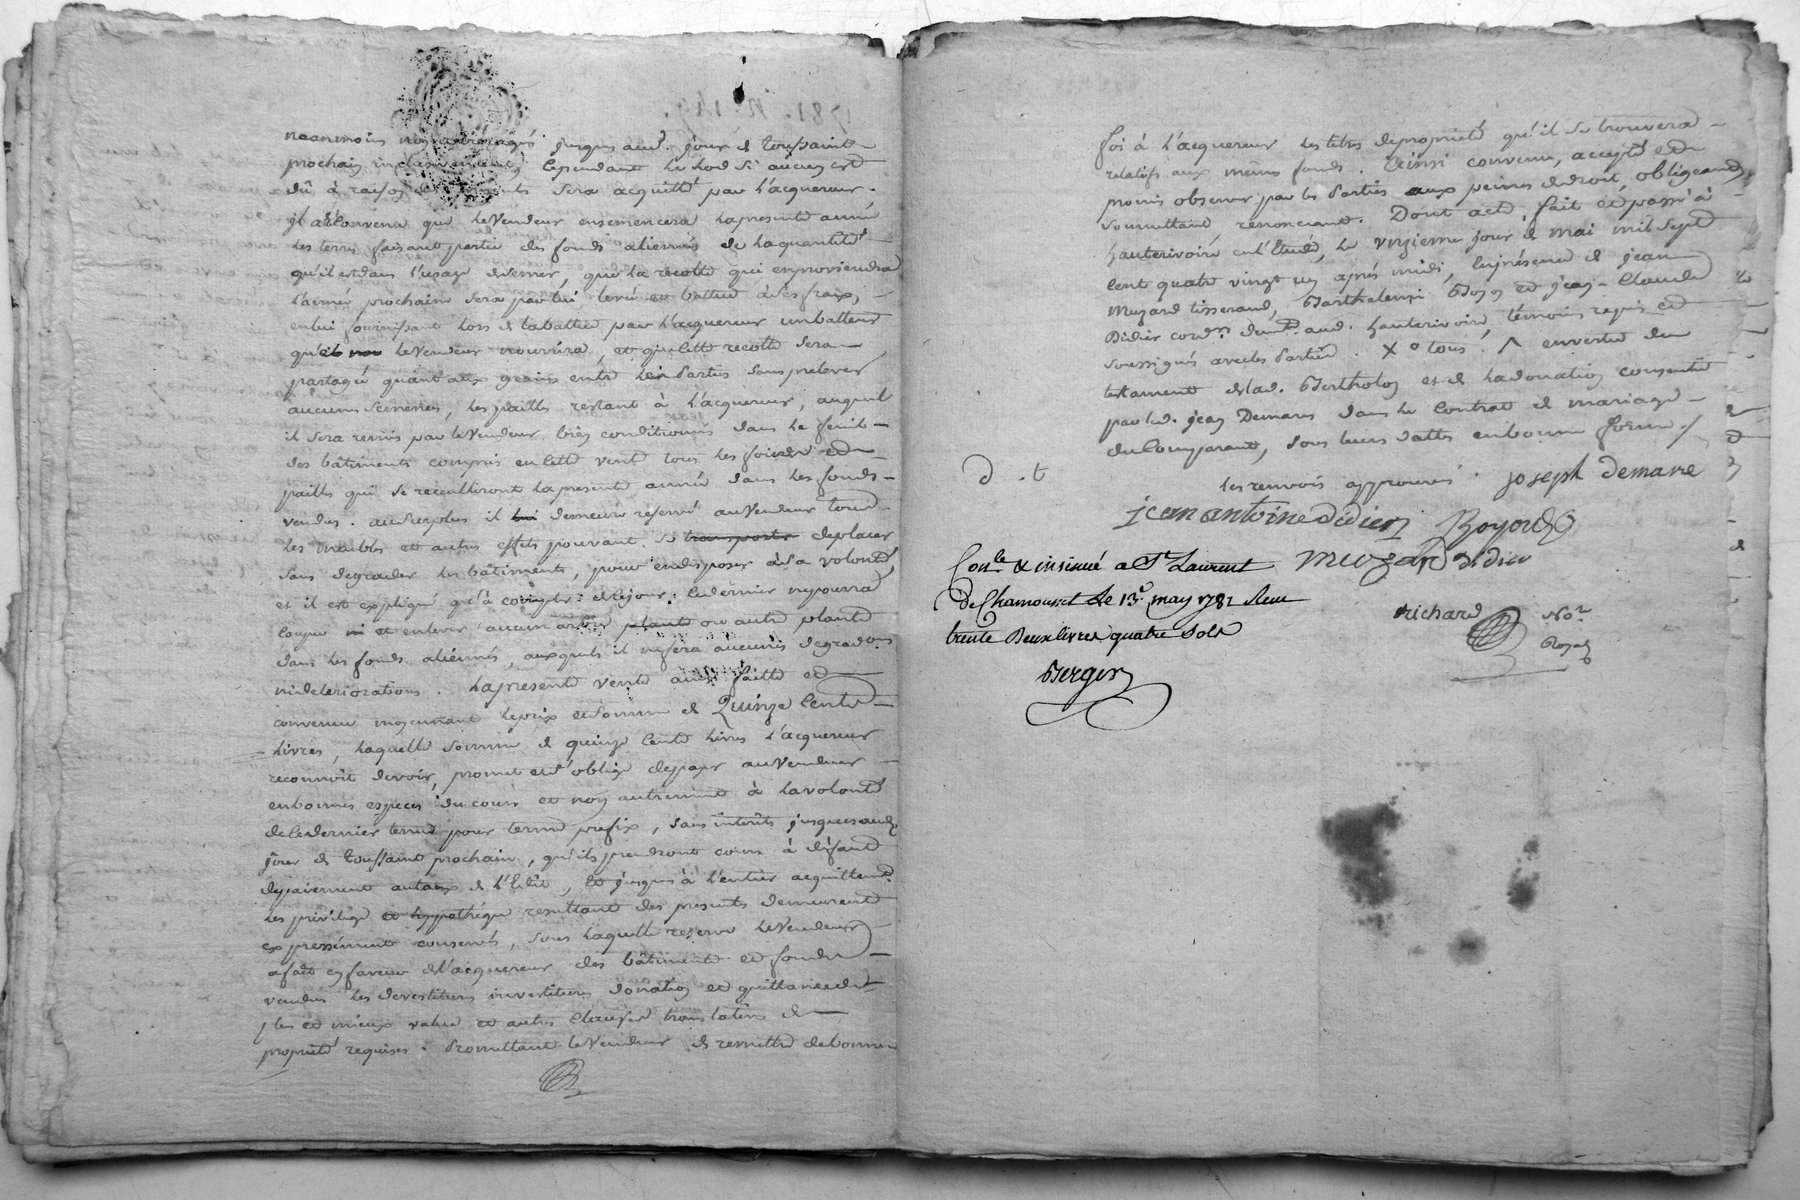 neanmoins jusques aud. jour de toussaint
prochain inclusivement, Cependant le lod si aucun est
dû à raison des presents sera acquitté par l'acquereur.
il est Convenu que le Vendeur ensemencera la presente année
les terres faisant partie des fonds alienés de la quantité
qu'il est dans l'usage de semer, que la recolte qui en proviendra
l'année prochaine sera par lui levée et battue à ses fraix,
en lui fournissant lors de la battue par l'acquereur un batteur
que le Vendeur nourrira, et que cette recolte sera
partagée quant aux grains entre les Parties sans prelever
aucunes semences, les pailles restant à l'acquereur, auquel
il sera remis par le Vendeur bien conditionnés dans le fenil
des bâtiments compris en cette vente tous les foins et
pailles qui se recueilliront la presente année dans les fonds
vendus. au surplus il demeure reservé au Vendeur tous
les meubles et autres effets pouvant se transporter deplacer
sans degrader les bâtiments, pour en disposer à sa volonté,
et il est expliqué qu'à compter de ce jour, ce dernier ne pourra
couper ni et enlever aucun arbre plante ou autre plante
dans les fonds alienés, auxquels il ne fera aucunes degradaons
ni deteriorations. La presente vente ainsi faitte et
convenue moyennant le prix et somme de Quinze Cents
livres, laquelle somme de quinze Cents livres l'acquereur
reconnoit devoir, promet et s'oblige de payer au Vendeur
en bonnes especes du cours et non autrement à la volonté
de ce dernier terme pour terme prefix, sans interêts jusques aud.
jour de Toussaint prochain, qu'ils prendront cours à défaut
de paiement au taux de l'Edit, et jusques à l'entier acquittemt.
les privilege et hypothéque resultant des presents demeurent
expressément conservés, sous laquelle reserve le Vendeur
a fait en faveur de l'acquereur des bâtiments et fonds
vendus les devestitures investitures donation et quittance de
plus et mieux value et autres Clauses translatives de
proprieté requises. Promettant le Vendeur de remettre de bonne
foi à l'acquereur les titres de proprieté qu'il se trouvera
relatifs aux mêmes fonds. Ainsi convenu, accepté et
promis observer par les Parties aux peines de droit, obligeant,
soumettant, renonçant. Dont acte, fait et passé à
hauterivoire en l'Etude, le onzieme jour de mai mil sept
cent quatre vingt un après midi, En presence de jean
Muzard tisserand, Barthelemi Boyon et jean-Claude
Didier cordr. demt. aud. hauterivoire, témoins requis et
soussignés avec les Parties. X o tous. ^ en vertu du
testament de lad. Bertholon et de la donation consentie
par led. jean Demare dans le Contrat de mariage
du Comparant, sous leurs dattes en bonne forme./
d . t
les renvois approuvés. joseph demare
jean antoine didier Boyon
Conle. & insinué a St Laurent muzard didier
De Chamousset Le 13e. may 1781 Reçu
trente Deux livres quatre Sols
richard No.re
Royal
Berger